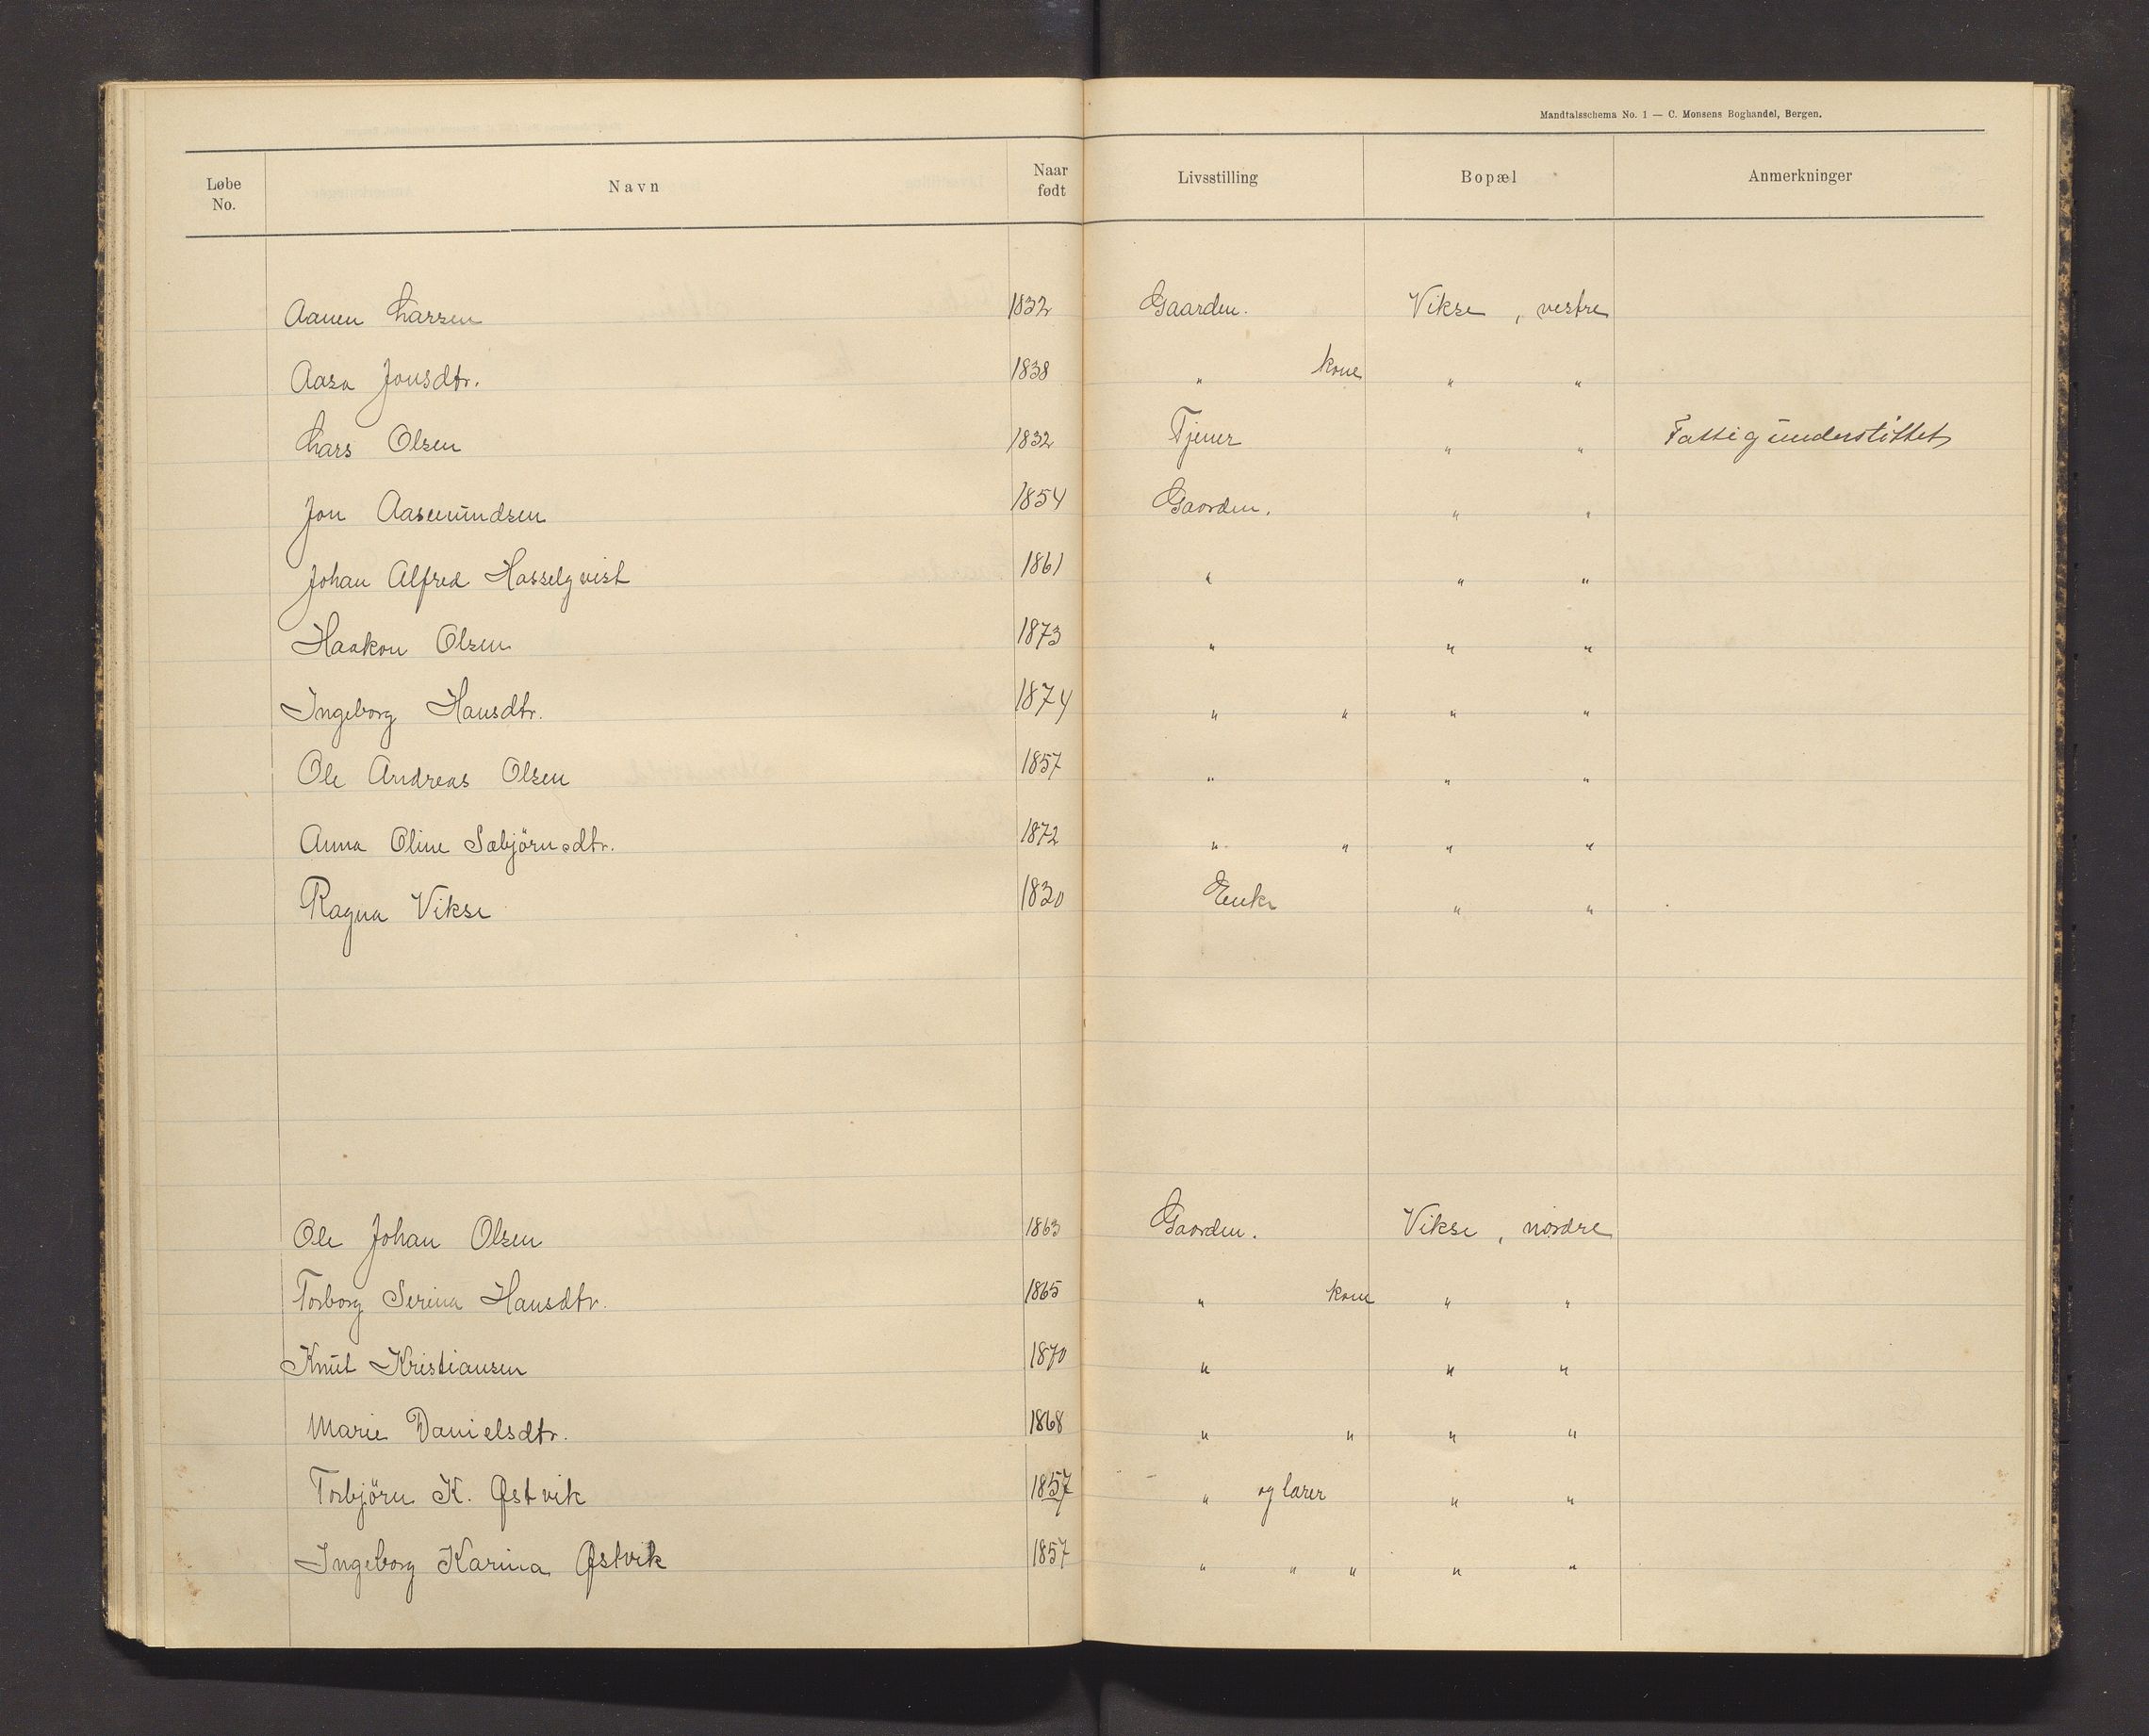 Mandtalsschema No. 1 — C. Monsens Boghandel, Bergen.
Løbe No. Navn Naar født Livsstilling Bopæl Anmerkninger
Aanen Larsen 1832 Gaarden. Vikse, vestre
Aasa Jonsdtr. 1838 " kone " "
Lars Olsen 1832 Tjener " " Fattigunderstittet
Jon Aasmundsen 1854 Gaarden. " "
Johan Alfred Hasselqvist 1861 " " "
Haakon Olsen 1873 " " "
Ingeborg Hansdtr. 1874 " " " "
Ole Andreas Olsen 1857 " " "
Anna Oline Sæbjörnsdtr. 1872 " " " "
Ragna Vikse 1830 Enke " "
Ole Johan Olsen 1863 Gaarden. Vikse, nordre
Torborg Serina Hansdtr. 1865 " kone " "
Knut Kristiansen 1870 " " "
Marie Danielsdtr. 1868 " " " "
Torbjörn K. Østvik 1857 " og lærer " "
Ingeborg Karina Østvik 1857 " " " " "